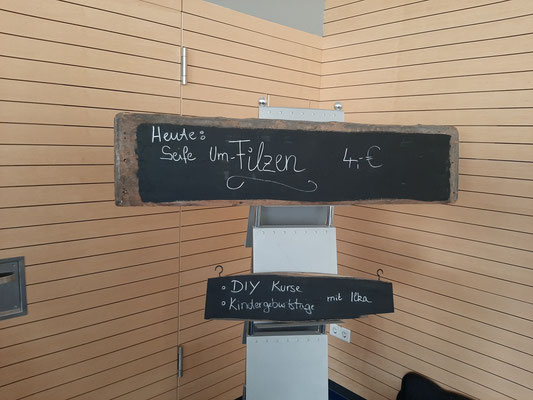 Heute:
Seife Um-Filzen 4,-€
DIY Kurse
Kindergeburtstage mit Ilka